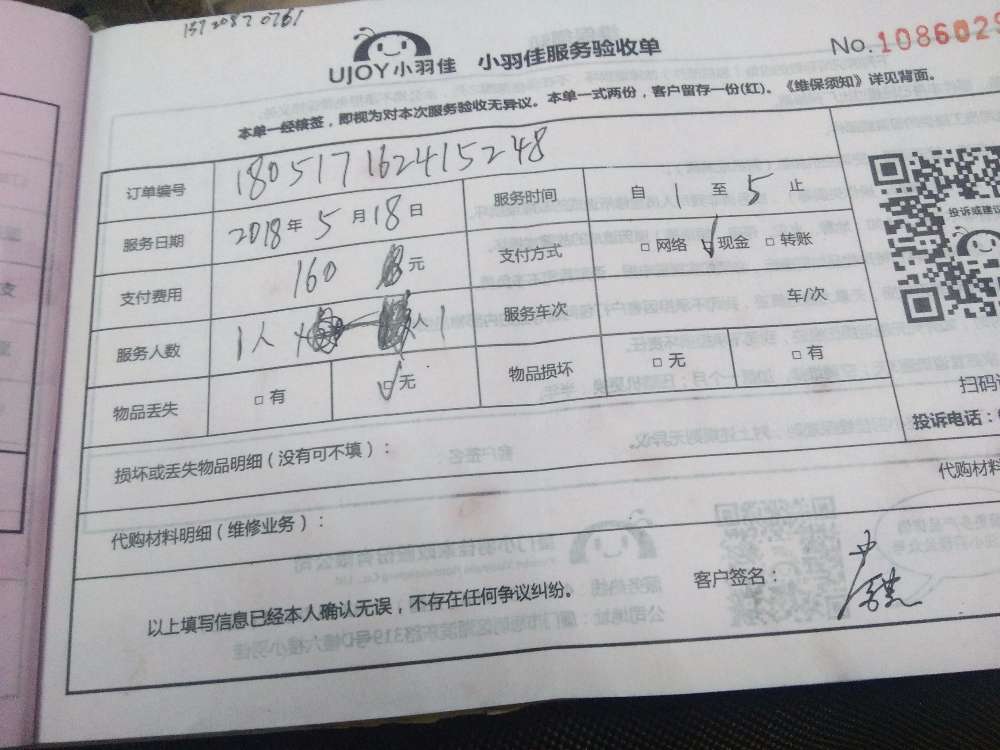 UJOY小羽佳 小羽佳服务验收单 No.1086029
本单一经核签，即视为对本次服务验收无异议。本单一式两份，客户留存一份(红)。《维保须知》详见背面。
订单编号 180517162415248
服务日期 2018年5月18日 服务时间 自 1 至 5 止
支付费用 160 元 支付方式 □网络 □现金 □转账
服务人数 1人 人 1 服务车次 车/次
物品丢失 □有 □无 物品损坏 □无 □有
投诉或建议
扫码
投诉电话：
损坏或丢失物品明细（没有可不填）：
代购材料明细（维修业务）： 代购材料
以上填写信息已经本人确认无误，不存在任何争议纠纷。 客户签名：